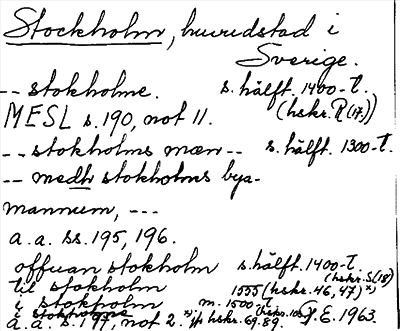 Stockholm, huvudstad i
Sverige.
-- stokholme. s. hälft. 1400-t.
(hskr. R (17))
MESL s. 190, not 11.
-- stokholms mæn -- s. hälft. 1300-t.
-- medh stokholms bya-
mannum, ---
a. a. ss. 195, 196.
offuan stokholm s. hälft. 1400-t.
(hskr. S (18)
til stokholm 1555 (hskr. 46, 47) x)
i stokholm m. 1500-t.
i stokholme
a. a. s. 197, not 2. x) jfr hskr. 69. 89. G. E. 1963